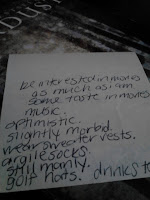 be interested in movies
as much as i am
some taste in movies
music.
optimistic.
slightly morbid.
wear sweater vests.
argile socks.
still manly.
golf hats. drinks